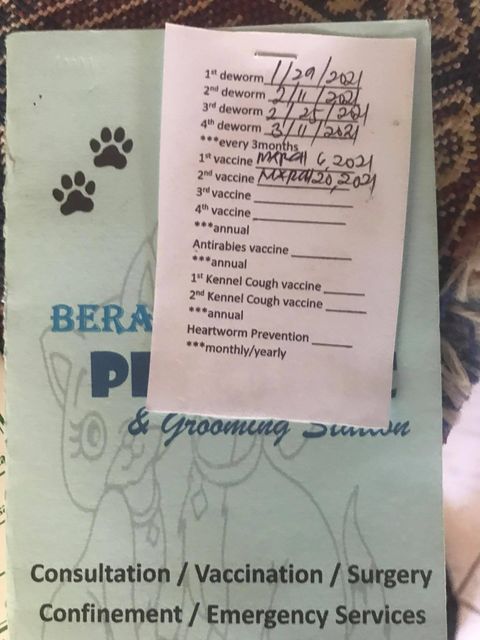 1st deworm 1/29/2021
2nd deworm 2/11/2021
3rd deworm 2/25/2021
4th deworm 3/11/2021
***every 3months
1st vaccine March 6, 2021
2nd vaccine March 20, 2021
3rd vaccine
4th vaccine
***annual
Antirabies vaccine
***annual
1st Kennel Cough vaccine
2nd Kennel Cough vaccine
***annual
Heartworm Prevention
***monthly/yearly
BERA
P
E
& Grooming Station
Consultation / Vaccination / Surgery
Confinement / Emergency Services